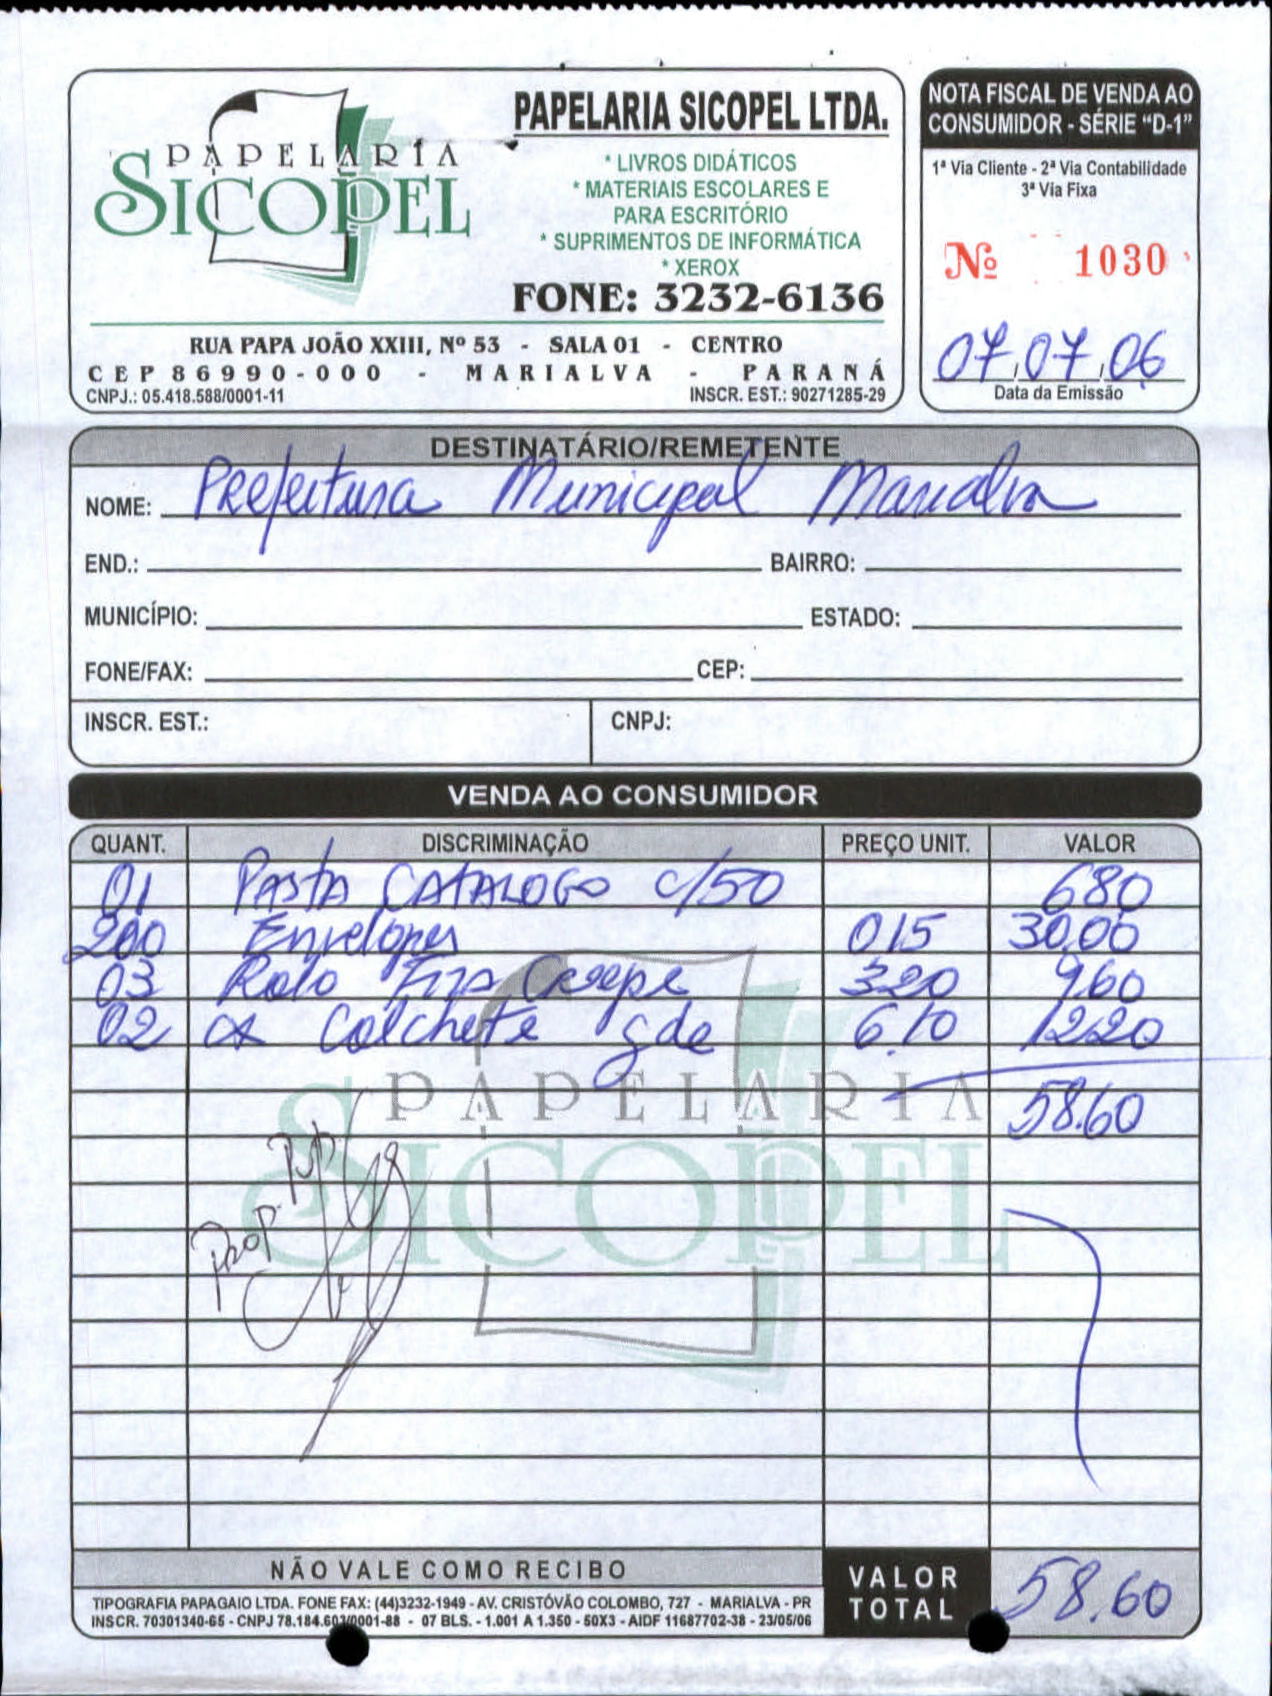 PAPELARIA
SICOPEL
PAPELARIA SICOPEL LTDA.
* LIVROS DIDÁTICOS
* MATERIAIS ESCOLARES E
PARA ESCRITÓRIO
* SUPRIMENTOS DE INFORMÁTICA
* XEROX
FONE: 3232-6136
RUA PAPA JOÃO XXIII, Nº 53 - SALA 01 - CENTRO
CEP 86990-000 - MARIALVA - PARANÁ
CNPJ.: 05.418.588/0001-11 INSCR. EST.: 90271285-29
NOTA FISCAL DE VENDA AO
CONSUMIDOR - SÉRIE "D-1"
1ª Via Cliente - 2ª Via Contabilidade
3ª Via Fixa
Nº 1030
07,07,06
Data da Emissão
DESTINATÁRIO/REMETENTE
NOME: Prefeitura Municipal Marialva
END.: BAIRRO:
MUNICÍPIO: ESTADO:
FONE/FAX: CEP:
INSCR. EST.: CNPJ:
VENDA AO CONSUMIDOR
QUANT. DISCRIMINAÇÃO PREÇO UNIT. VALOR
01 PASTA CATALOGO c/50 680
200 Envelopes 015 30,00
03 Rolo Fita Crepe 320 960
02 cx Colchete gde 6.10 1220
58.60
PAPELARIA
SICOPEL
NÃO VALE COMO RECIBO
TIPOGRAFIA PAPAGAIO LTDA. FONE FAX: (44)3232-1949 - AV. CRISTÓVÃO COLOMBO, 727 - MARIALVA - PR
INSCR. 70301340-65 - CNPJ 78.184.603/0001-88 - 07 BLS. - 1.001 A 1.350 - 50X3 - AIDF 11687702-38 - 23/05/06
VALOR
TOTAL 58.60